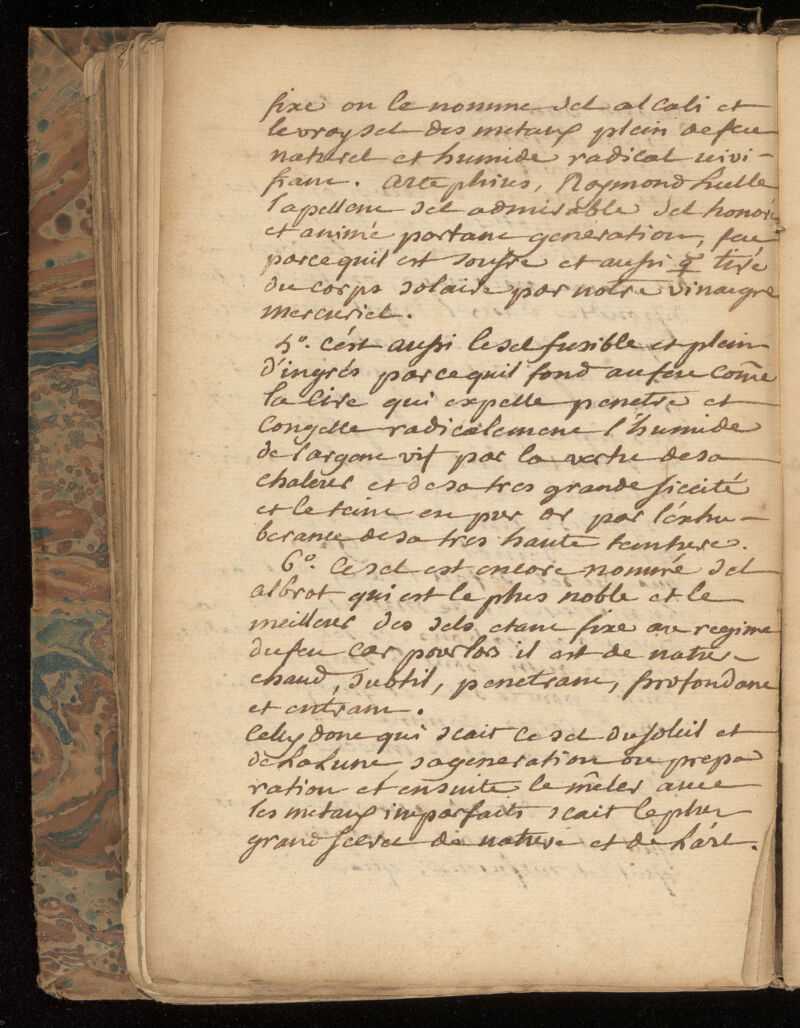 fixe on le nomme sel alcali et
le vray sel des metaux plein de feu
naturel et humide radical vivi-
fiant. Artephius, Raymond Lulle
lapellent sel admirable sel honoré
et animé portant generation, feu
parce quil est soufre et aussi tiré
du corps solaire par notre vinaigre
mercuriel.
5º. c'est aussi le sel fusible et plein
d'ingrés parce quil fond au feu come
la Cire qui expelle penetre et
Congelle radicalement l'humide
de largent vif par la vertu de sa
chaleur et de sa tres grande siccité
et le teint en pur or par l'exhu-
berance de sa tres haute teinture.
6º. Ce sel est encore nommé sel
albrot qui est le plus noble et le
meilleur des sels, etant fixe au regime
du feu Car pour lors il est de nature
chaud, subtil, penetrant, profondant
et entrant.
Celuy donc qui scait Ce sel du soleil et
de La Lune, sa generation ou prepa
ration et ensuite le mêler avec
les metaux imparfaits scait le plus
grand secret de nature et de L'art.